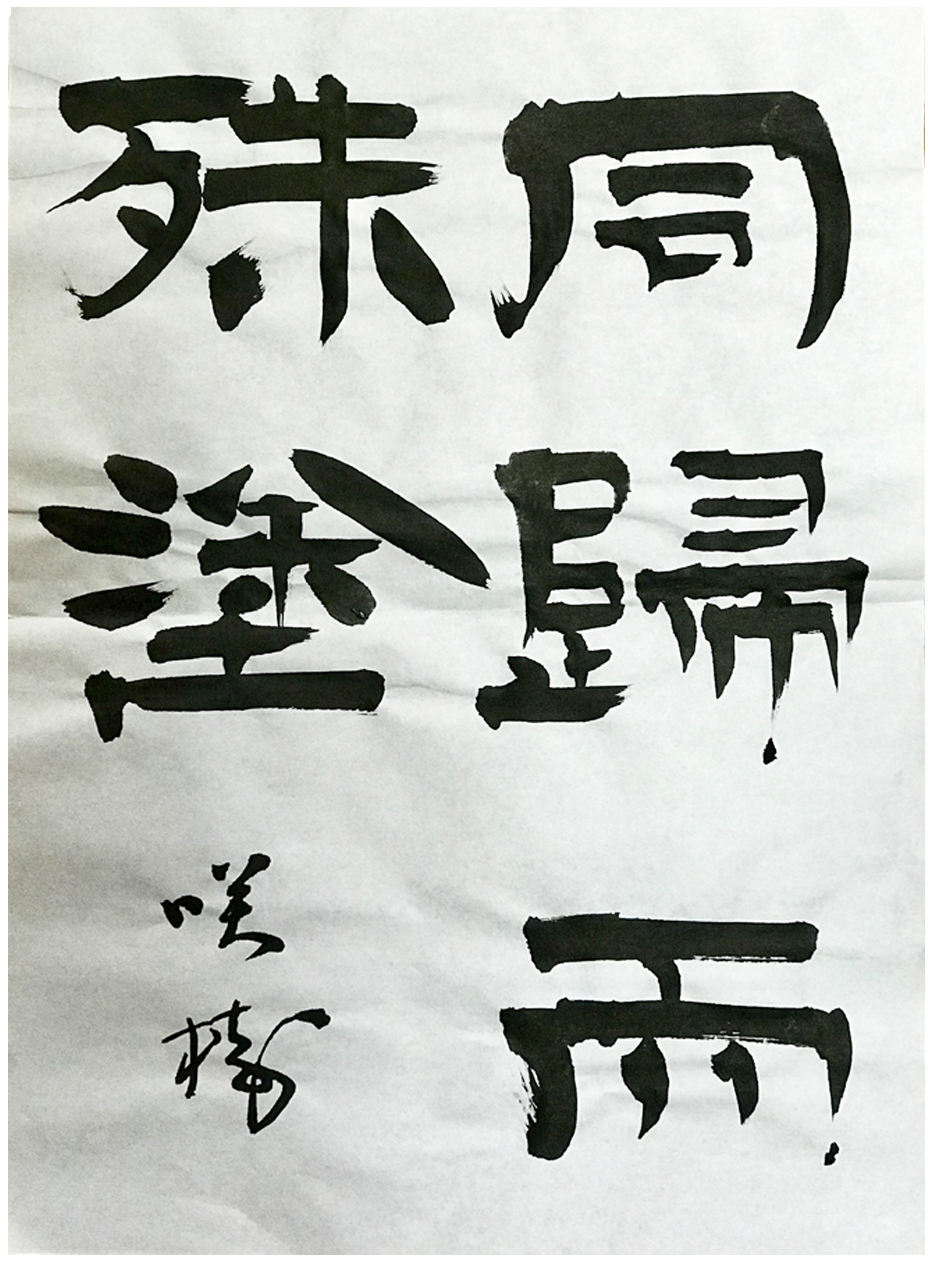 同歸而
殊塗
咲樹